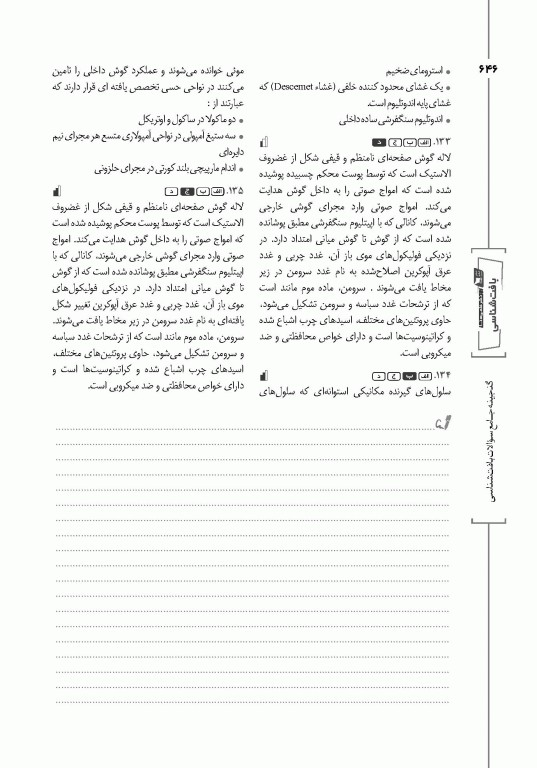 ۶۴۶
استرومای ضخیم
یک غشای محدود کننده خلفی (غشاء Descemet) که
غشای پایه اندوتلیوم است.
اندوتلیوم سنگفرشی ساده داخلی
۱۳۳. الف ب ج د
لاله گوش صفحه‌ای نامنظم و قیفی شکل از غضروف
الاستیک است که توسط پوست محکم چسبیده پوشیده
شده است که امواج صوتی را به داخل گوش هدایت
می‌کند. امواج صوتی وارد مجرای گوشی خارجی
می‌شوند، کانالی که با اپیتلیوم سنگفرشی مطبق پوشانده
شده است که از گوش تا گوش میانی امتداد دارد. در
نزدیکی فولیکول‌های موی باز آن، غدد چربی و غدد
عرق آپوکرین اصلاح‌شده به نام غدد سرومن در زیر
مخاط یافت می‌شوند . سرومن، ماده موم مانند است
که از ترشحات غدد سباسه و سرومن تشکیل می‌شود،
حاوی پروتئین‌های مختلف، اسیدهای چرب اشباع شده
و کراتینوسیت‌ها است و دارای خواص محافظتی و ضد
میکروبی است.
۱۳۴. الف ب ج د
سلول‌های گیرنده مکانیکی استوانه‌ای که سلول‌های
موئی خوانده می‌شوند و عملکرد گوش داخلی را تامین
می‌کنند در نواحی حسی تخصص یافته ای قرار دارند که
عبارتند از :
دو ماکولا در ساکول و اوتریکل
سه ستیغ آمپولی در نواحی آمپولاری متسع هر مجرای نیم
دایره‌ای
اندام مارپیچی بلند کورتی در مجرای حلزونی
۱۳۵. الف ب ج د
لاله گوش صفحه‌ای نامنظم و قیفی شکل از غضروف
الاستیک است که توسط پوست محکم پوشیده شده است
که امواج صوتی را به داخل گوش هدایت می‌کند. امواج
صوتی وارد مجرای گوشی خارجی می‌شوند، کانالی که با
اپیتلیوم سنگفرشی مطبق پوشانده شده است که از گوش
تا گوش میانی امتداد دارد. در نزدیکی فولیکول‌های
موی باز آن، غدد چربی و غدد عرق آپوکرین تغییر شکل
یافته‌ای به نام غدد سرومن در زیر مخاط یافت می‌شوند.
سرومن، ماده موم مانند است که از ترشحات غدد سباسه
و سرومن تشکیل می‌شود، حاوی پروتئین‌های مختلف،
اسیدهای چرب اشباع شده و کراتینوسیت‌ها است و
دارای خواص محافظتی و ضد میکروبی است.
بافت‌شناسی
گنجینه جامع سؤالات بافت‌شناسی